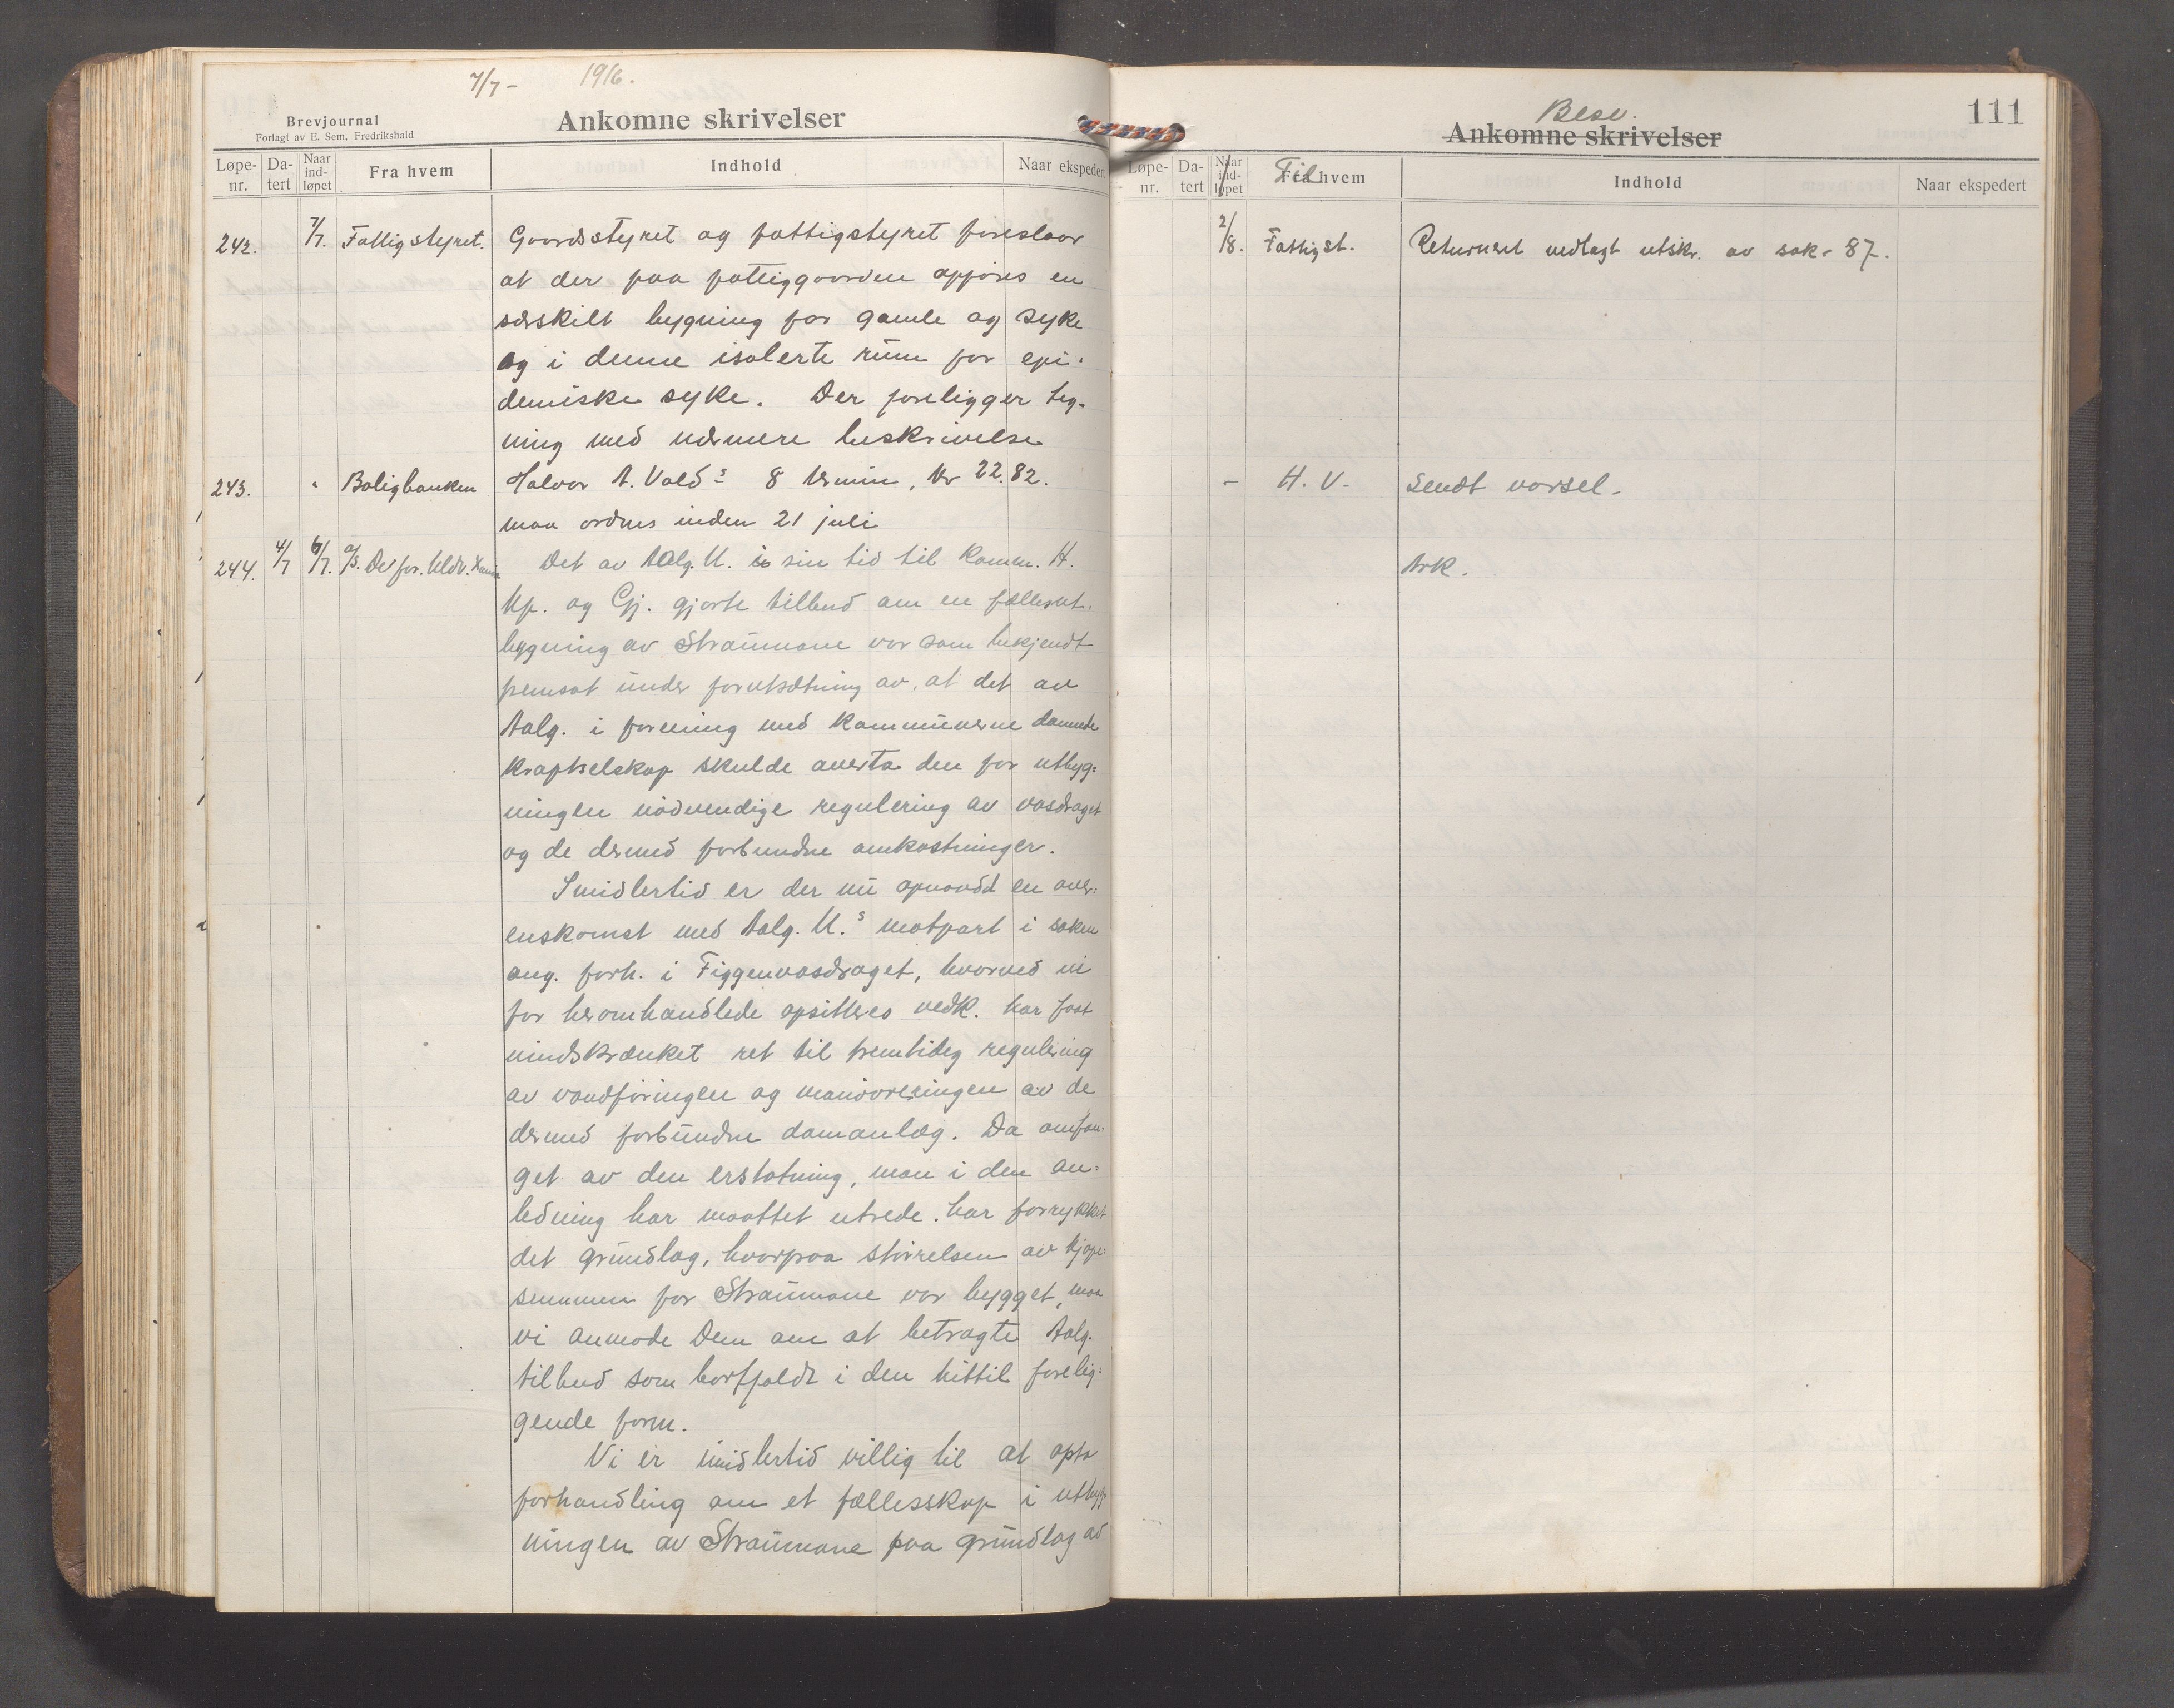 7/7 - 1916.
Brevjournal
Forlagt av E. Sem, Fredrikshald
Ankomne skrivelser
Løpe-nr. Da-tert Naar ind-løpet Fra hvem Indhold Naar ekspedert
242. 7/7. Fattigstyret. Gaardsstyret og fattigstyret foreslaar
at der paa fattiggaarden opføres en
særskilt bygning for gamle og syke
og i denne isolerte rum for epi-
demiske syke. Der foreligger teg-
ning med nærmere beskrivelse
243. " Boligbanken Halvor A. Valds 8 termin, kr 22.82.
maa ordnes inden 21 juli
244. 4/7 6/7. A/S. De for. Uldv. Det av Aalg. U. i sin tid til komm. H.
Kp. og Gj. gjorte tilbud om en fællesut-
bygning av Straumane var som bekjendt
fremsat under forutsætning av, at det av
Aalg. i forening med kommunerne dannede
kraftselskap skulde overta den for utbyg-
ningen nödvendige regulering av vasdraget
og de dermed forbundne omkostninger.
Imidlertid er der nu opnaadd en over-
enskomst med Aalg. U.s motpart i saken
ang. forh. i Figgenvasdraget, hvorved vi
for heromhandlede opsitteres vedk. har faat
uindskrænket ret til fremtidig regulering
av vandføringen og manøvreringen av de
dermed forbundne damanlæg. Da omfan-
get av den erstatning, man i den an-
ledning har maattet utrede, har forrykket
det grundlag, hvorpaa størrelsen av kjøpe-
summen for Straumane var bygget, maa
vi anmode Dem om at betragte Aalg.
tilbud som bortfaldt i den hittil forelig-
gende form.
Vi er imidlertid villig til at opta
forhandling om et fællesskap i utbyg-
ningen av Straumane paa grundlag av
111
Besv.
Ankomne skrivelser
Løpe-nr. Da-tert Naar ind-løpet Fra hvem Til Indhold Naar ekspedert
2/8. Fattigst. Returnert vedlagt utskr. av sak - 87.
- H. V. Sendt varsel.
Ark.